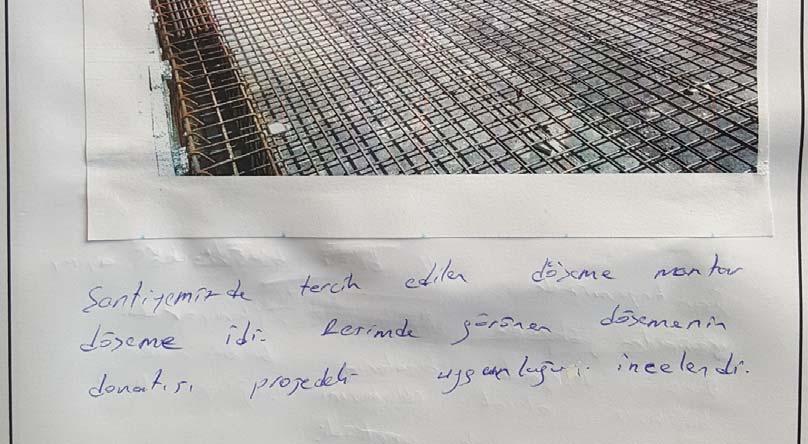 Şantiyemizde tercih edilen döşeme mantar
döşeme idi. Resimde görünen döşemenin
donatısı projedeki uygunluğu incelendi.